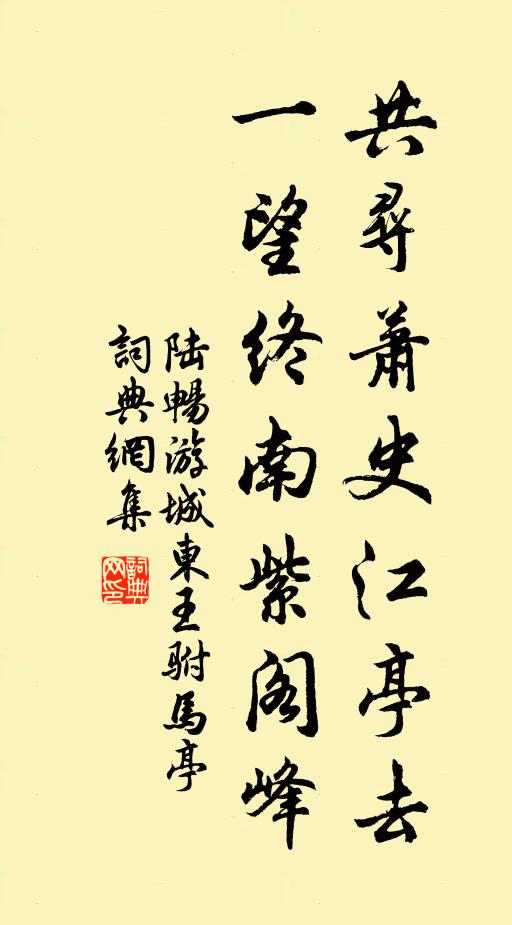 共尋蕭史江亭去
一望終南紫閣峰
陆暢游城東王駙馬亭
詞典網集
詞典
网印